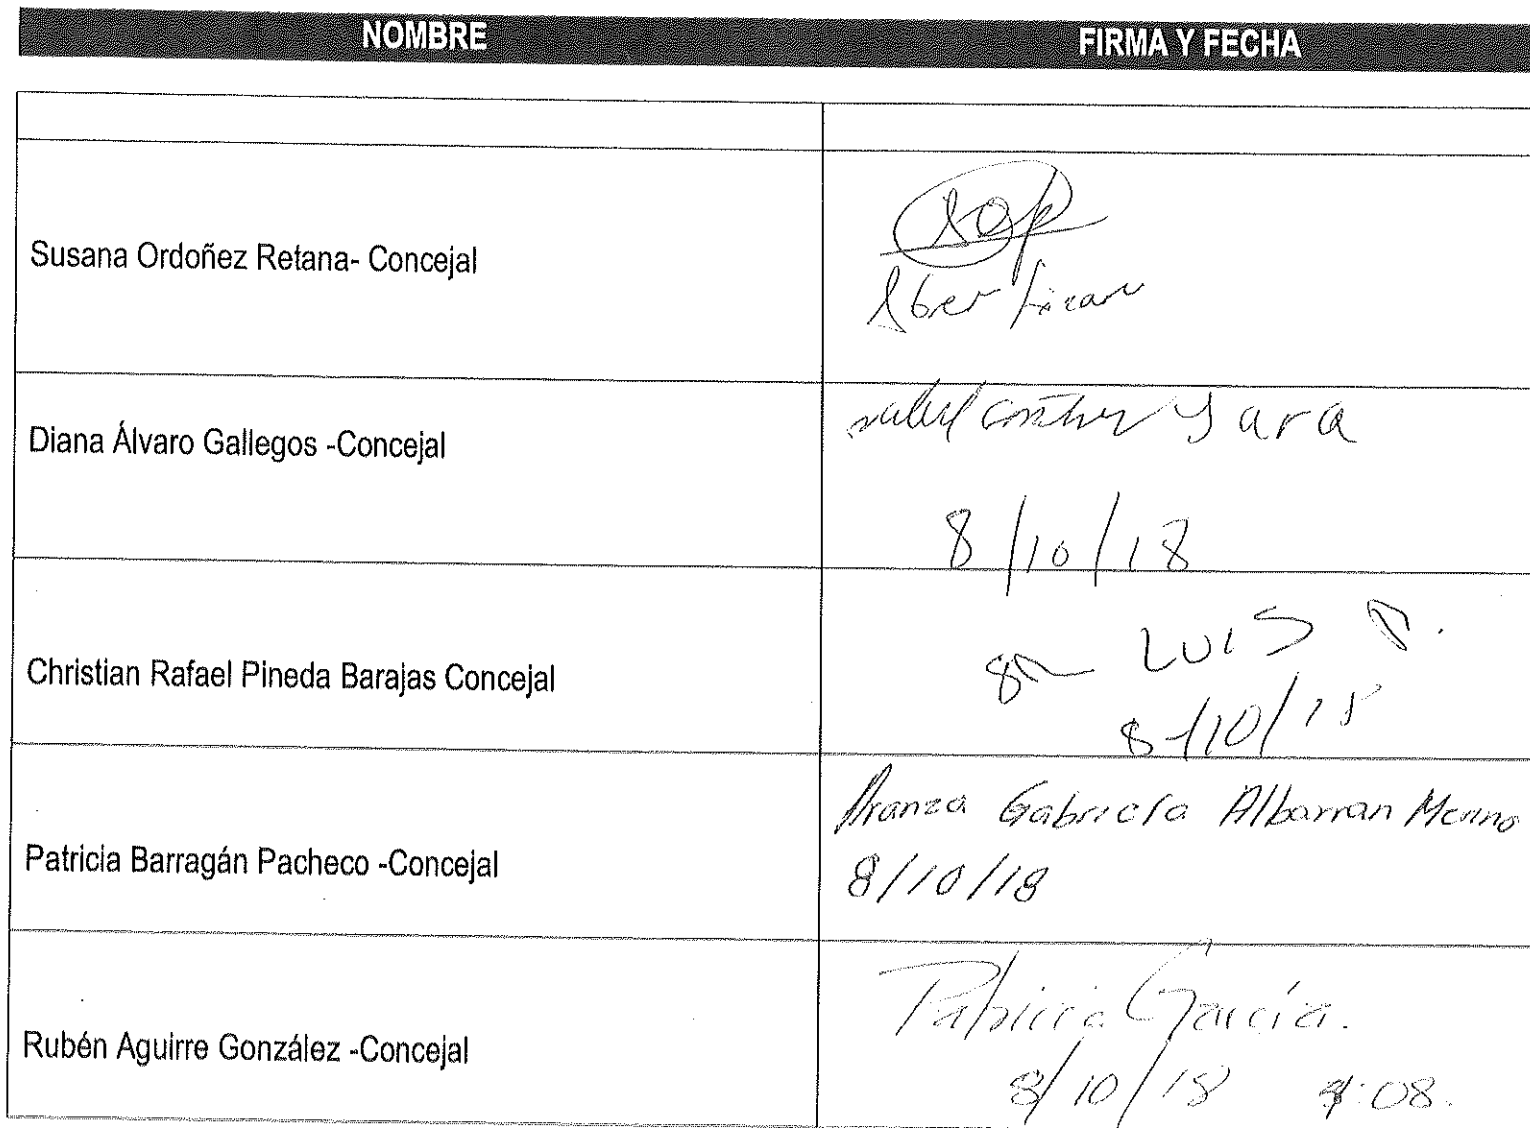 NOMBRE FIRMA Y FECHA
Susana Ordoñez Retana- Concejal
Diana Álvaro Gallegos -Concejal
8/10/18
Christian Rafael Pineda Barajas Concejal
LUIS
8/10/18
Patricia Barragán Pacheco -Concejal
Aranza Gabriela Albarran Merino
8/10/18
Rubén Aguirre González -Concejal
Patricia García.
8/10/18